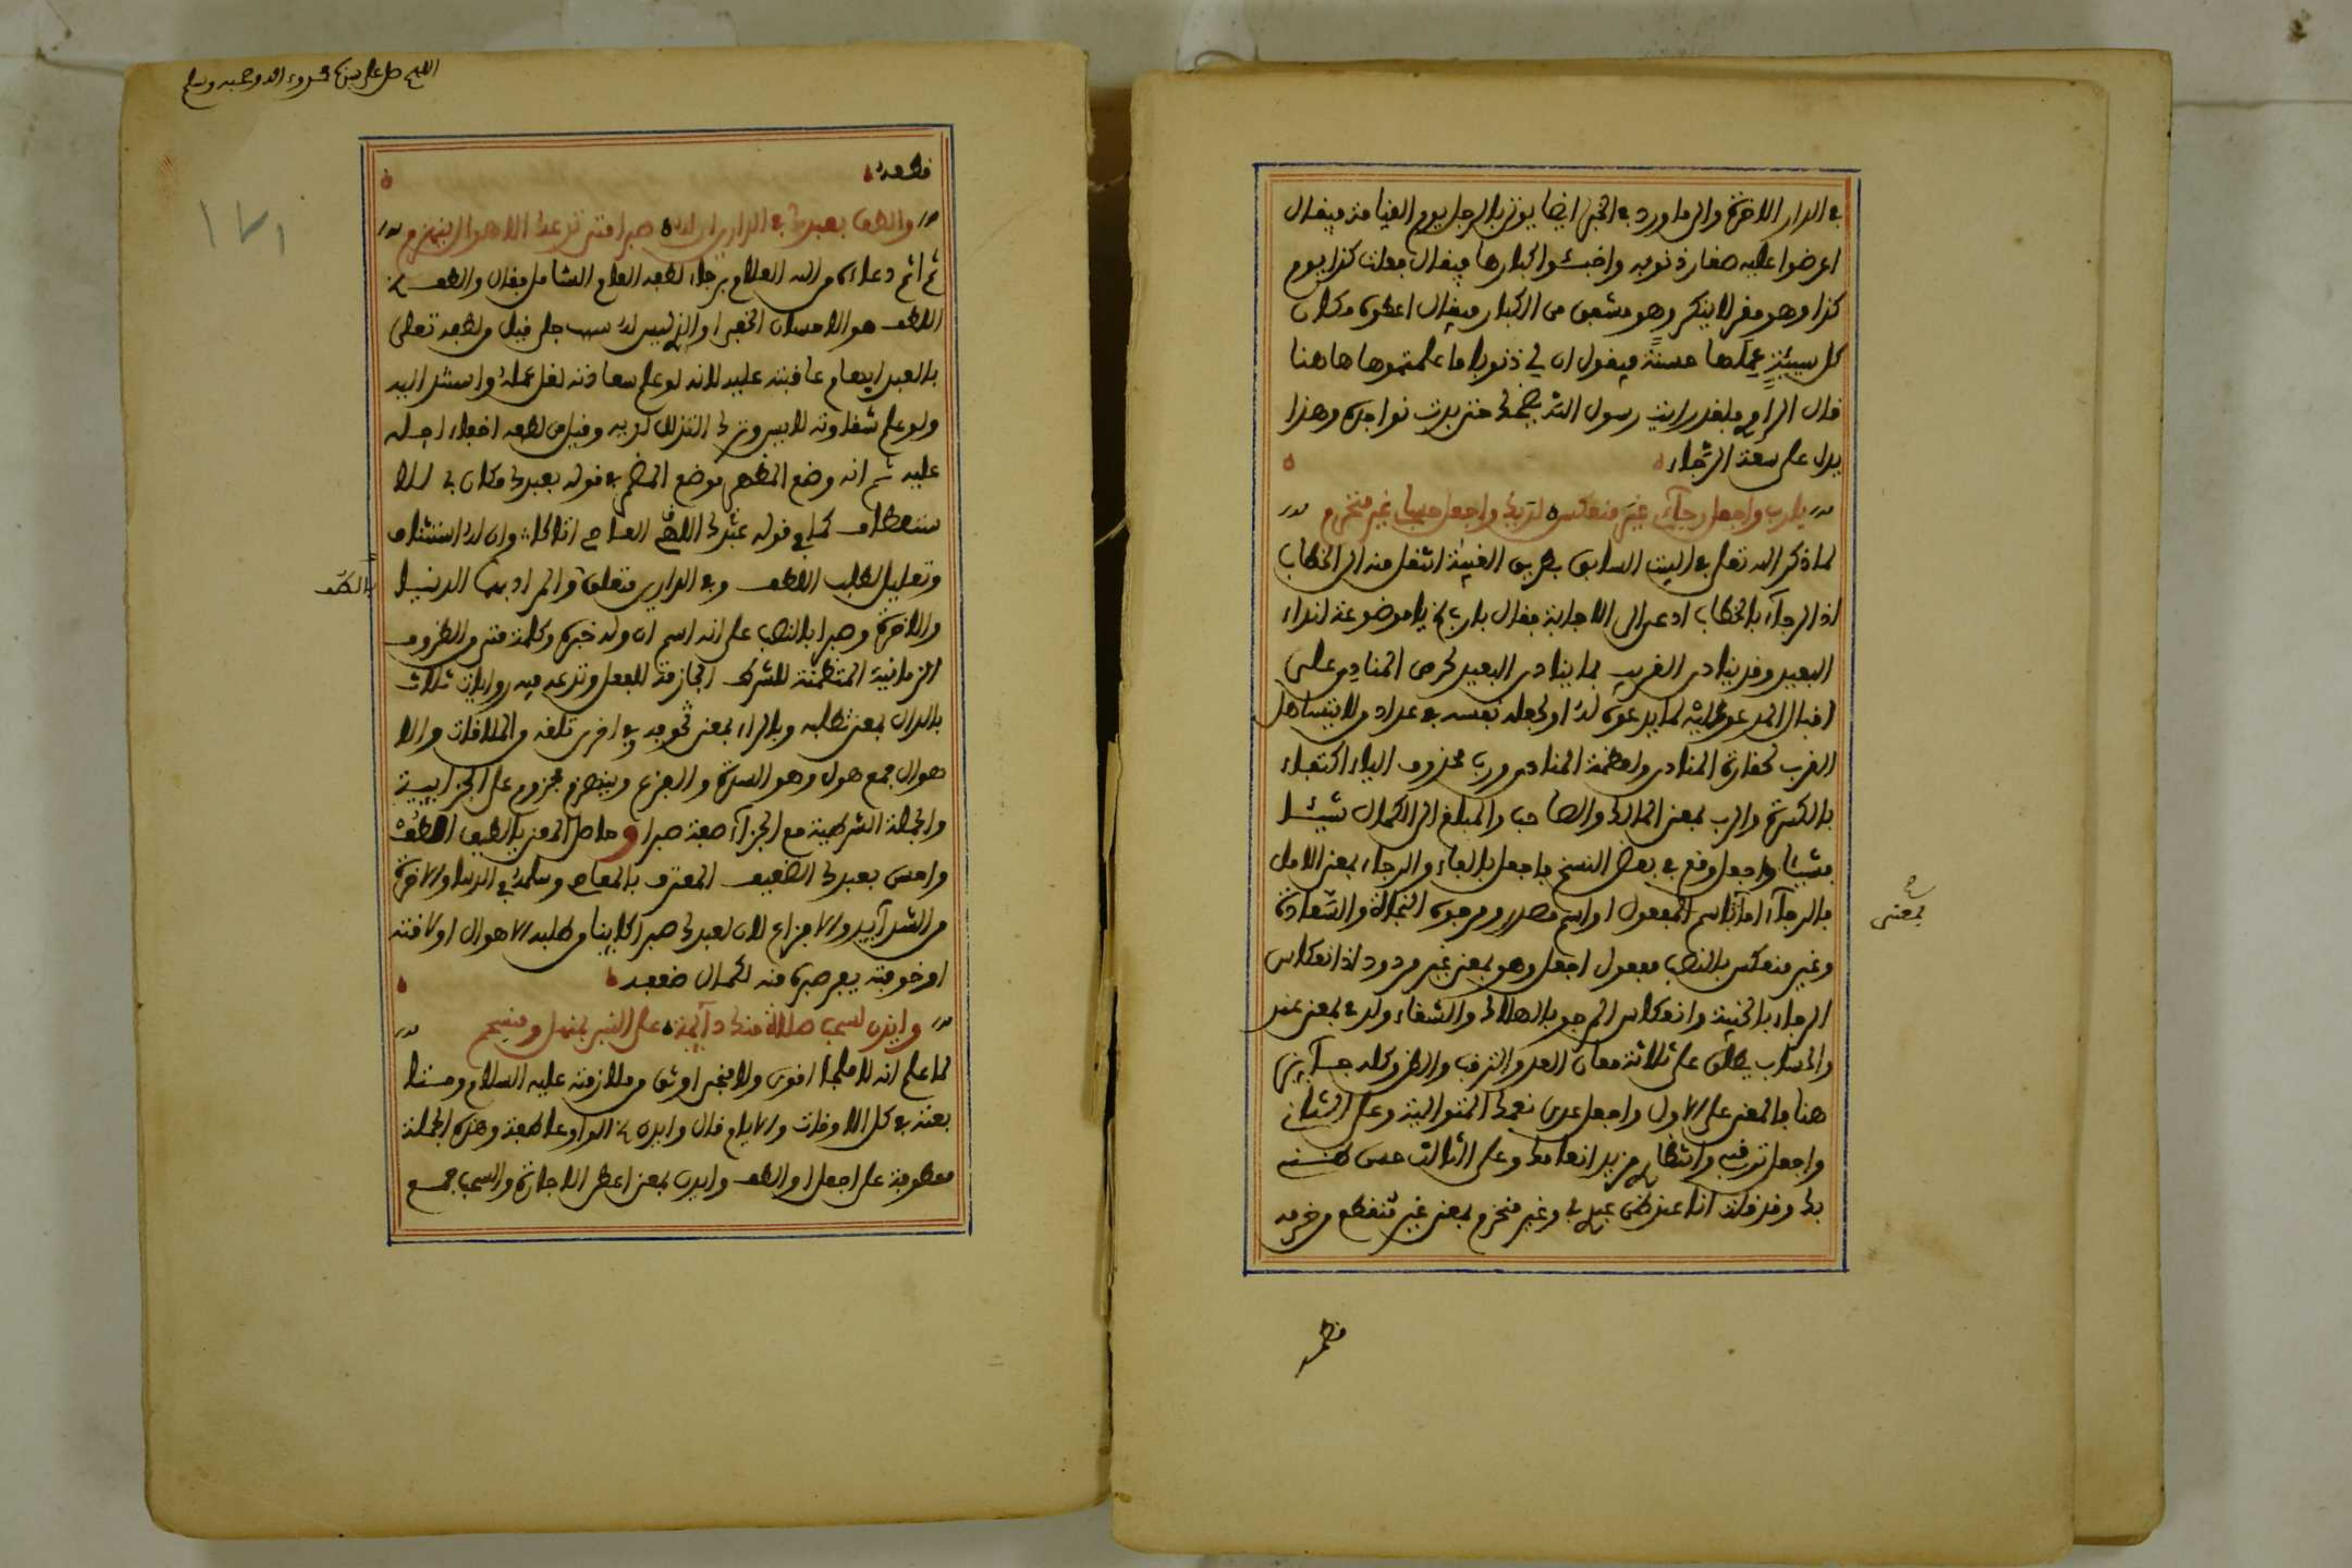 في الدار الاخرة والى ما ورد في الخبر ايضا يؤتى بالرجل يوم القيامة فيقال
اعرضوا عليه صغار ذنوبه واخبئوا كبارها فيقال فعلت كذا يوم
كذا وهو مقر لا ينكر وهو مشفق من الكبار فيقال اعطوه مكان
كل سيئة عملها حسنة فيقول ان لي ذنوبا ما علمتموها هاهنا
قال الراوي فلقد رايت رسول الله يضحك حتى بدت نواجذه وهذا
يدل على سعة الرجاء
يا رب واجعل رجآءي غير منعكس لديك واجعل حسابي غير منخرم
لما ذكر الله تعلى في البيت السابق بطريق الغيبة انتقل منه الى الخطاب
اذ الرجآء بالخطاب ادعى الى الاجابة فقال يا رب يا موضوعة لنداء
البعيد وقد ينادى القريب بما ينادى البعيد لحرص المنادي على
اقبال المدعو عليه لما يدعوه له او لجعله نفسه في عداد من لا يتساهل
القرب لحقارة المنادي وعظمة المنادى ورب محذوف الياء اكتفاء
بالكسرة والرب بمعنى المالك والصاحب والمبلغ الى الكمال شيئا
فشيئا واجعل وقع في بعض النسخ فاجعل بالفاء والرجاء بمعنى الامل
بمعنى
فالرجآء اما اسم المفعول او اسم مصدر ومرجوه النجاة والسعادة
وغير منعكس بالنصب مفعول اجعل وهو بمعنى غير مردود اذ انعكاس
الرجاء بالخيبة وانعكاس المرجو بالهلاك والشقاء ولدى بمعنى عند
والحساب يطلق على ثلاثة معان العد والترقب والظن وكله جآئز
هنا فالمعنى على الاول واجعل عدي نعمك المتوالية وعلى الثاني
واجعل ترقبي وانتظاري مزيد انعامك وعلى الثالث حسن ظني
بك وقد قلت انا عند ظن عبدي بي وغير منخرم بمعنى غير منقطع من خرمه
قطعه
اللهم صل على سيدنا محمد وءاله وصحبه وسلم
١٧١
قطعه
والطف بعبدك في الدارين ان له صبرا متى تدعه الاهوال ينهزم
ثم اتم دعاءه من الله العلام برجاء لطفه العام الشامل فقال والطف
اللطف هو الاحسان الخفي او الذي ليس له سبب جلي قيل من لطفه تعلى
بالعبد ابهام عاقبته عليه لانه لو علم سعادته لقل عمله واستند اليه
ولو علم شقاوته لايس وترك التذلل لديه وقيل من لطفه اخفاء اجله
عليه ثم انه وضع المظهر موضع المضمر في قوله بعبدك مكان بي للا
ستعطاف كما في قوله عبدك اللهم العاصي اتاك وان له استئناف
وتعليل لطلب اللطف وفي الدارين متعلق والمراد بهما الدنيا
باللطف
والاخرة وصبرا بالنصب على انه اسم ان وله خبره وكلمة متى من الظروف
الزمانية المتضمنة للشرط الجازمة للفعل وتدعه فيه روايات ثلاث
بالدال بمعنى تطلبه وبالراء بمعنى تخوفه وفي اخرى تلقه من الملاقات والا
هوال جمع هول وهو الشدة والفزع وينهزم مجزوم على الجزاءيية
والجملة الشرطية مع الجزآء صفة صبرا وحاصل المعنى يا لطيف الطف
واحسن بعبدك الضعيف المعترف بالمعاصي وسلمه في الدنيا والاخرة
من الشدآئد والافزاع لان لعبدك صبرا كلاينا من طلبه الاهوال او لاقته
او خوفته يفر صبره منه لكمال ضعفه
وايذن لسحب صلاة منك دآئمة على النبي بمنهل ومنسجم
لما علم انه لا ملجأ اقوى ولا منجى اوثق من ملازمته عليه السلام ومتا
بعته في كل الاوقات والايام قال وايذن الواو عاطفة وهذه الجملة
معطوفة على اجعل او الطف وايذن بمعنى اعط الاجازة والسحب جمع